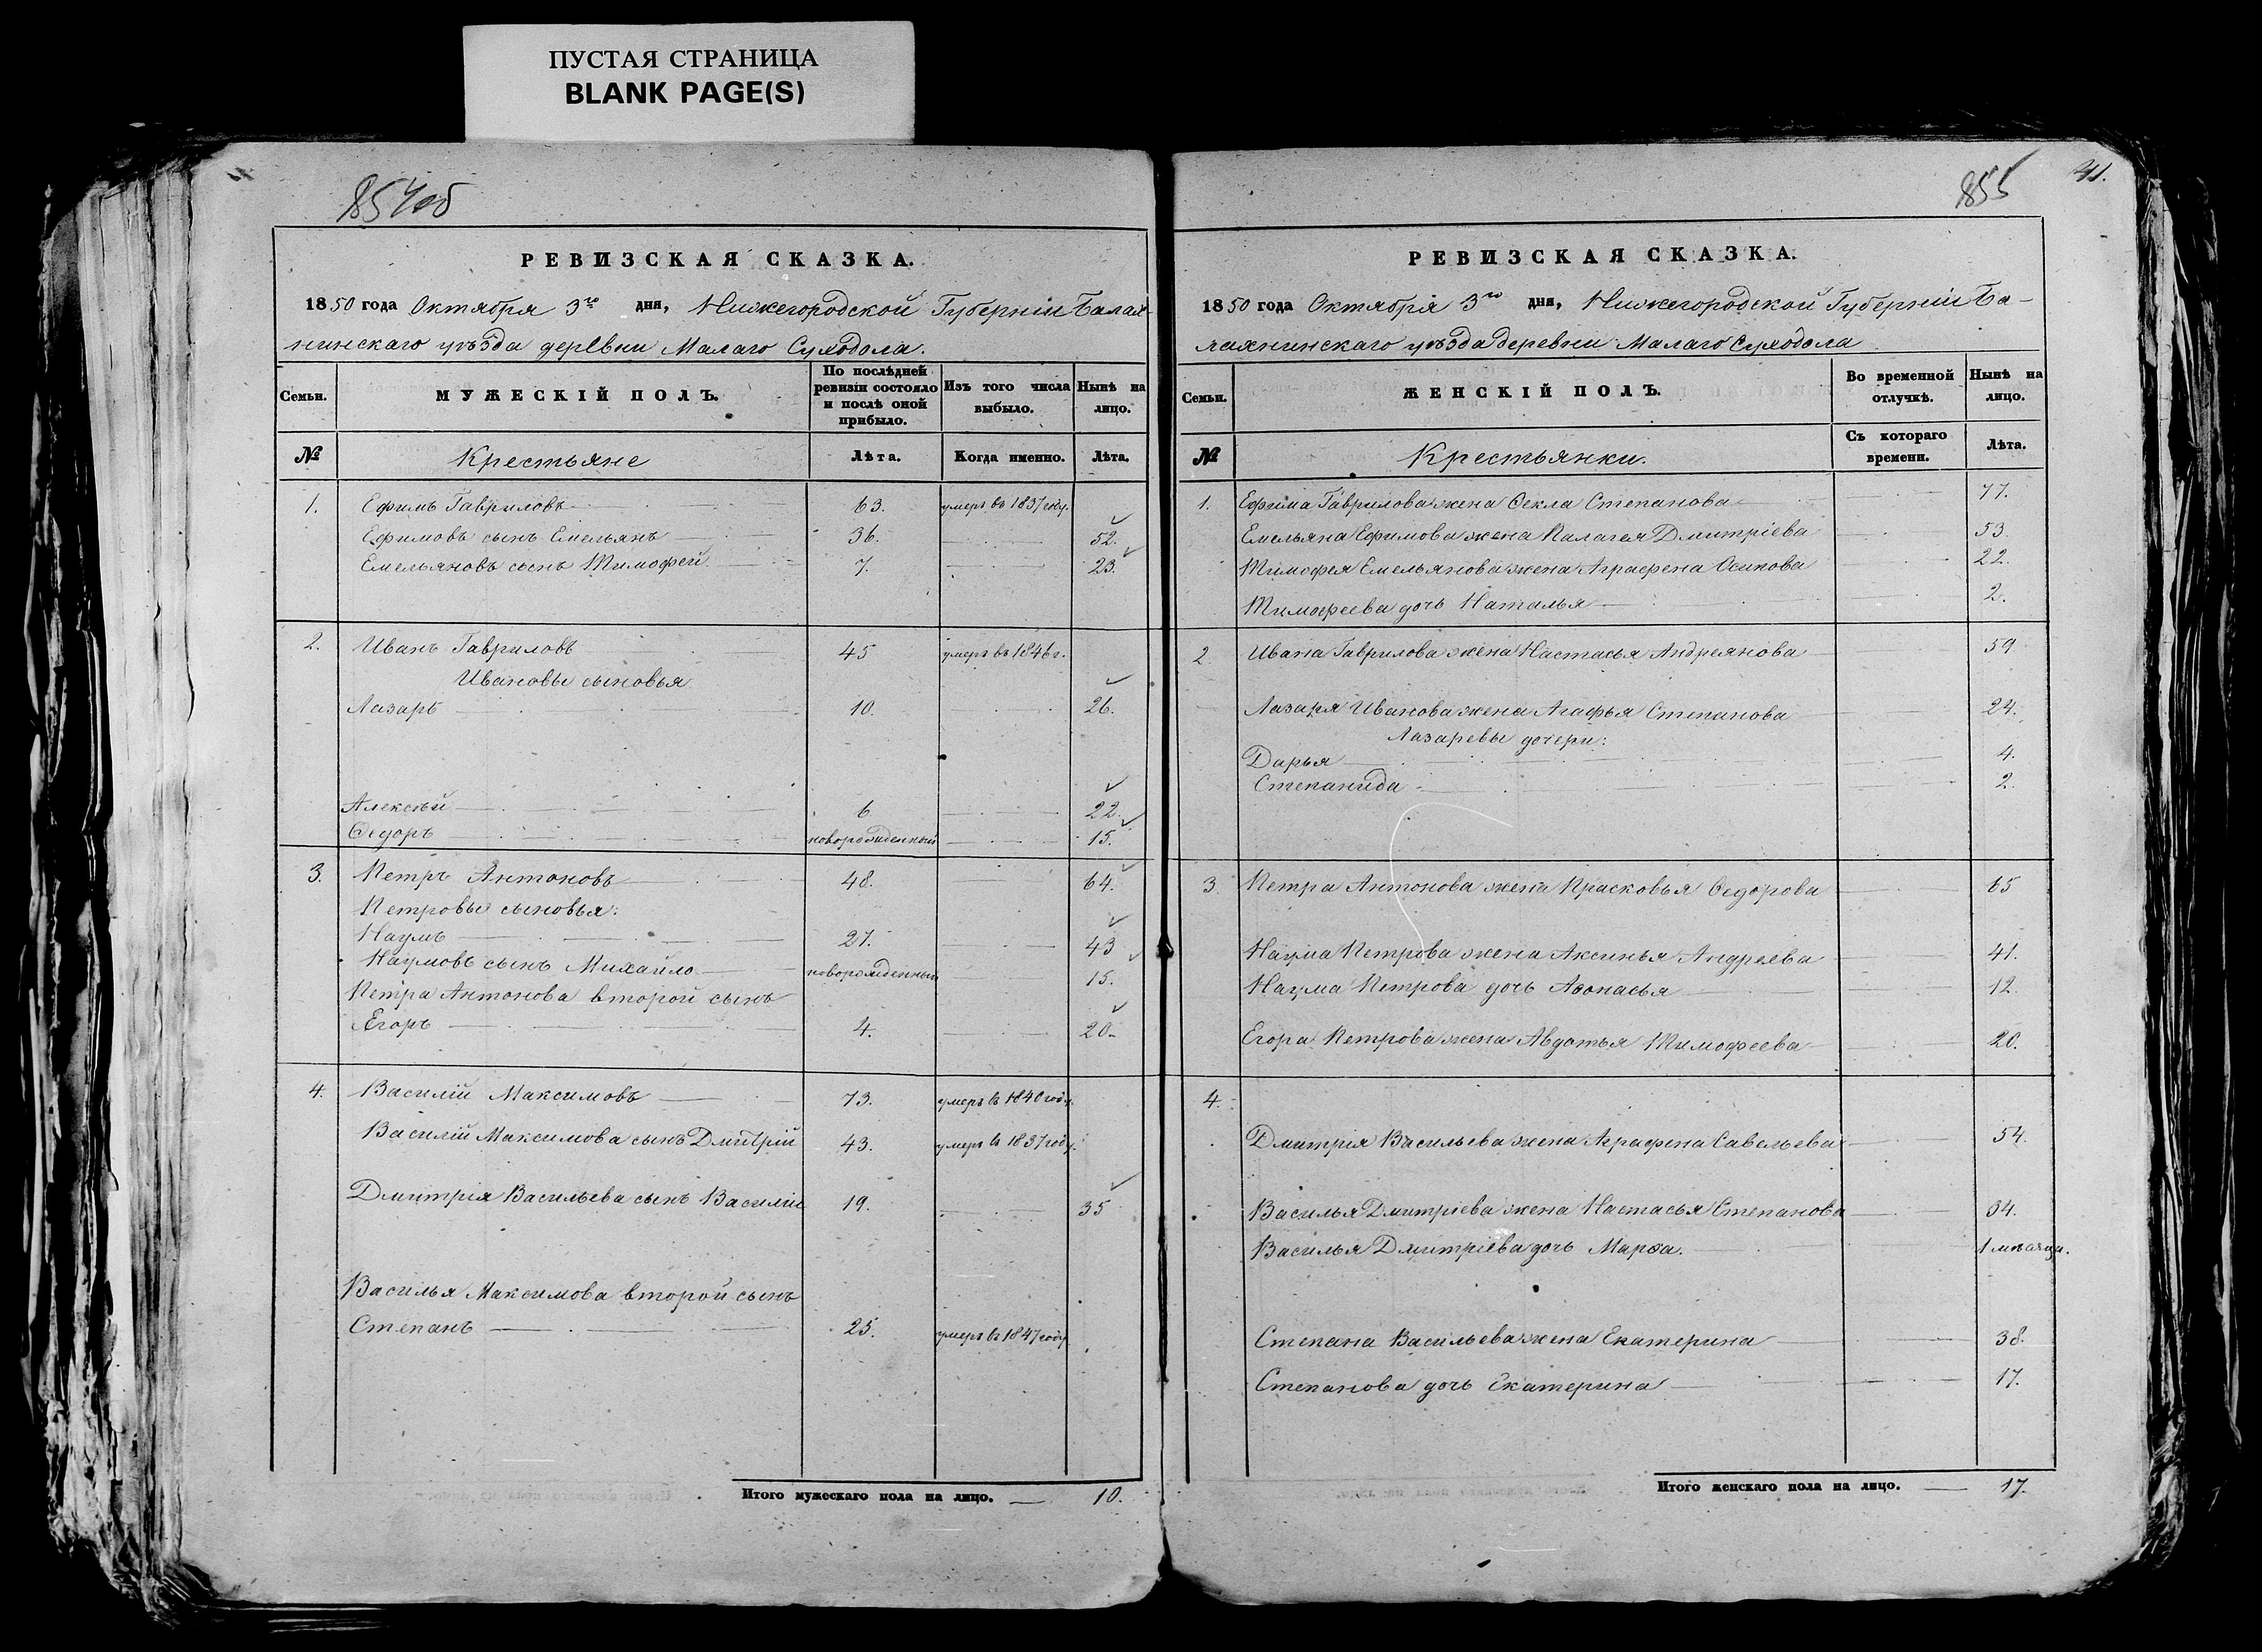 ПУСТАЯ СТРАНИЦА
BLANK PAGE(S)
854об
РЕВИЗСКАЯ СКАЗКА.
1850 года Октября 3го дня, Нижегородской Губерніи Балах-
нинскаго уѣзда деревни Малаго Суходола.
Семьи. МУЖЕСКІЙ ПОЛЪ. По послѣдней ревизіи состояло и послѣ оной прибыло. Изъ того числа выбыло. Нынѣ на лицо.
№ Крестьяне Лѣта. Когда именно. Лѣта.
1. Ефимъ Гавриловъ 63. умеръ въ 1837 году.
Ефимовъ сынъ Емельянъ 36. 52.
Емельяновъ сынъ Тимофей. 7. 23.
2. Иванъ Гавриловъ 45 умеръ въ 1846 г.
Ивановы сыновья
Лазарь 10. 26.
Алексѣй 6 22.
Ѳедоръ новорожденный 15.
3. Петръ Антоновъ 48. 64.
Петровы сыновья:
Наумъ 27. 43
Наумовъ сынъ Михайло новорожденный 15.
Петра Антонова второй сынъ
Егоръ 4. 20.
4. Василій Максимовъ 73. умеръ въ 1840 году.
Василій Максимова сынъ Дмитрій 43. умеръ въ 1837 году.
Дмитрія Васильева сынъ Василій 19. 35
Василья Максимова второй сынъ
Степанъ 25. умеръ въ 1847 году
Итого мужескаго пола на лицо. 10.
855
41.
РЕВИЗСКАЯ СКАЗКА.
1850 года Октября 3го дня, Нижегородской Губерніи Ба-
лахнинскаго уѣзда деревни Малаго Суходола
Семьи. ЖЕНСКІЙ ПОЛЪ. Во временной отлучкѣ. Нынѣ на лицо.
№ Крестьянки. Съ котораго времени. Лѣта.
1. Ефима Гаврилова жена Ѳекла Степанова 77.
Емельяна Ефимова жена Палагея Дмитріева 53.
Тимофея Емельянова жена Аграфена Осипова 22.
Тимофеева дочь Наталья 2.
2 Ивана Гаврилова жена Настасья Андреянова 59
Лазаря Иванова жена Агафья Степанова 24.
Лазаревы дочери:
Дарья 4.
Степанида 2.
3 Петра Антонова жена Прасковья Ѳедорова 65
Наума Петрова жена Аксинья Андреева 41.
Наума Петрова дочь Аѳонасья 12.
Егора Петрова жена Авдотья Тимофеева 20.
4.
Дмитрія Васильева жена Аграфена Савельева 54.
Василья Дмитріева жена Настасья Степанова 34.
Василья Дмитріева дочь Марѳа. 1 мѣсяца.
Степана Васильева жена Екатерина 38.
Степанова дочь Екатерина 17.
Итого женскаго пола на лицо. 17.